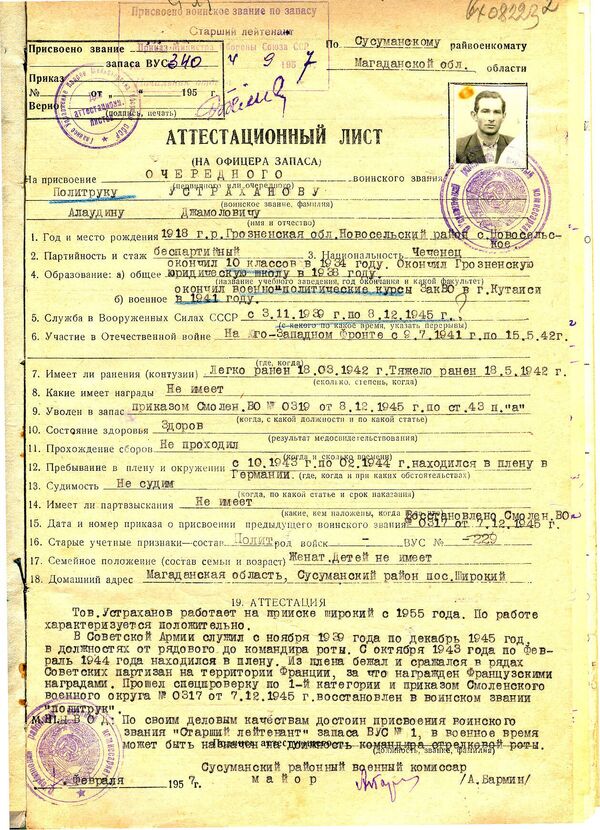 Присвоено воинское звание по запасу
Старший лейтенант
Присвоено звание
запаса ВУС 340
По Сусуманскому райвоенкомату
Магаданской обл. области
Приказ
№ от „ “ 195 г.
Верно
(подпись, печать)
АТТЕСТАЦИОННЫЙ ЛИСТ
(НА ОФИЦЕРА ЗАПАСА)
На присвоение ОЧЕРЕДНОГО воинского звания
(первичного или очередного)
Политруку УСТРАХАНОВУ
(воинское звание, фамилия)
Алаудину Джамоловичу
(имя и отчество)
1. Год и место рождения 1918 г.р.Грозненская обл.Новосельский район с.Новосельс-
кое.
2. Партийность и стаж беспартийный 3. Национальность Чеченец
окончил 10 классов в 1934 году. Окончил Грозненскую
4. Образование: а) общее юридическую школу в 1938 году.
(название учебного заведения, год окончания и какой факультет)
окончил военно-политические курсы ЗакВО в г.Кутаиси
б) военное в 1941 году.
5. Служба в Вооруженных Силах СССР с 3.11.1939 г.по 8.12.1945 г.
(с какого по какое время, указать перерывы)
6. Участие в Отечественной войне На Юго-Западном Фронте с 9.7.1941 по 15.5.42г.
(где, когда)
7. Имеет ли ранения (контузии) Легко ранен 18.03.1942 г.Тяжело ранен 18.5.1942 г.
(сколько, степень, когда)
8. Какие имеет награды Не имеет
9. Уволен в запас приказом Смолен.ВО № 0319 от 8.12.1945 г.по ст.43 п."а"
(когда, с какой должности и по какой статье)
10. Состояние здоровья Здоров
(результат медосвидетельствования)
11. Прохождение сборов Не проходил
(когда и сколько времени)
12. Пребывание в плену и окружении с 10.1943 г.по 02.1944 г.находился в плену в
Германии.
(где, когда и при каких обстоятельствах)
13. Судимость Не судим
(когда, по какой статье и срок наказания)
14. Имеет ли партвзыскания Не имеет
Восстановлено Смолен.ВО
15. Дата и номер приказа о присвоении предыдущего воинского звания № 0317 от 7.12.1945 г.
16. Старые учетные признаки—состав Полит род войск - ВУС № -229
17. Семейное положение (состав семьи и возраст) Женат.Детей не имеет
18. Домашний адрес Магаданская область, Сусуманский район пос.Широкий
19. АТТЕСТАЦИЯ
Тов.Устраханов работает на прииске широкий с 1955 года. По работе
характеризуется положительно.
В Советской Армии служил с ноября 1939 года по декабрь 1945 год,
в должностях от рядового до командира роты. С октября 1943 года по Фев-
раль 1944 года находился в плену. Из плена бежал и сражался в рядах
Советских партизан на территории Франции, за что награжден Французскими
наградами. Прошел спецпроверку по 1-й категории и приказом Смоленского
военного округа № 0317 от 7.12.1945 г.восстановлен в воинском звании
"политрук".
ВЫВОД: По своим деловым качествам достоин присвоения воинского
звания "Старший лейтенант" запаса ВУС № 1, в военное время
может быть назначен на должность командира стрелковой роты.
(должность, звание, фамилия)
Сусуманский районный военный комиссар
Февраля 1957г. майор /А.Бармин/